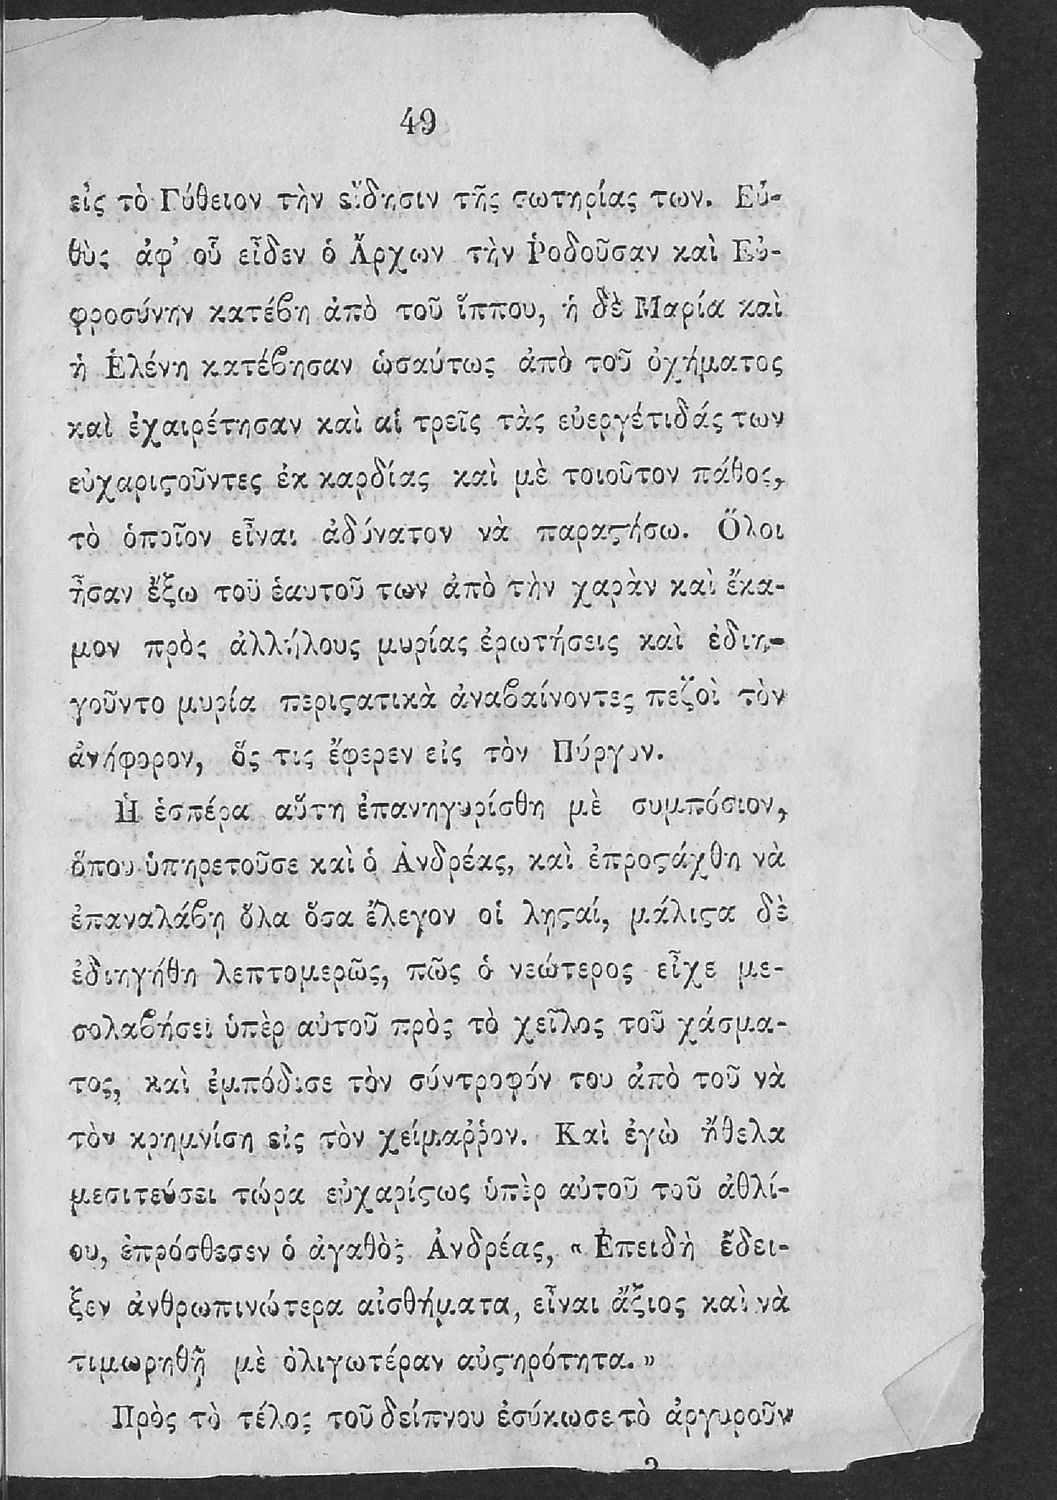 49
εἰς τὸ Γύθειον τὴν εἴδησιν τῆς σωτηρίας των. Εὐ-
θὺς ἀφ' οὗ εἶδεν ὁ Ἄρχων τὴν Ῥοδοῦσαν καὶ Εὐ-
φροσύνην κατέβη ἀπὸ τοῦ ἵππου, ἡ δὲ Μαρία καὶ
ἡ Ἑλένη κατέβησαν ὡσαύτως ἀπὸ τοῦ ὀχήματος
καὶ ἐχαιρέτησαν καὶ αἱ τρεῖς τὰς εὐεργέτιδάς των
εὐχαριϛοῦντες ἐκ καρδίας καὶ μὲ τοιοῦτον πάθος,
τὸ ὁποῖον εἶναι ἀδύνατον νὰ παραϛήσω. Ὅλοι
ἦσαν ἔξω τοῦ ἑαυτοῦ των ἀπὸ τὴν χαρὰν καὶ ἔκα-
μον πρὸς ἀλλήλους μυρίας ἐρωτήσεις καὶ ἐδιη-
γοῦντο μυρία περιϛατικὰ ἀναβαίνοντες πεζοὶ τὸν
ἀνήφορον, ὅς τις ἔφερεν εἰς τὸν Πύργον.
Ἡ ἑσπέρα αὕτη ἐπανηγυρίσθη μὲ συμπόσιον,
ὅπου ὑπηρετοῦσε καὶ ὁ Ἀνδρέας, καὶ ἐπροϛάχθη νὰ
ἐπαναλάβῃ ὅλα ὅσα ἔλεγον οἱ λῃϛαί, μάλιϛα δὲ
ἐδιηγήθη λεπτομερῶς, πῶς ὁ νεώτερος εἶχε με-
σολαβήσει ὑπὲρ αὐτοῦ πρὸς τὸ χεῖλος τοῦ χάσμα-
τος, καὶ ἐμπόδισε τὸν σύντροφόν του ἀπὸ τοῦ νὰ
τὸν κρημνίση εἰς τὸν χείμαῤῥον. Καὶ ἐγὼ ἤθελα
μεσιτεύσει τώρα εὐχαρίϛως ὑπὲρ αὐτοῦ τοῦ ἀθλί-
ου, ἐπρόσθεσεν ὁ ἀγαθὸς Ἀνδρέας, « Ἐπειδὴ ἔδει-
ξεν ἀνθρωπινώτερα αἰσθήματα, εἶναι ἄξιος καὶ νὰ
τιμωρηθῇ μὲ ὀλιγωτέραν αὐϛηρότητα. »
Πρὸς τὸ τέλος τοῦ δείπνου ἐσύκωσε τὸ ἀργυροῦν